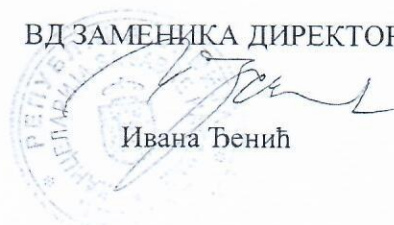 ВД ЗАМЕНИКА ДИРЕКТОР
Ивана Ђенић